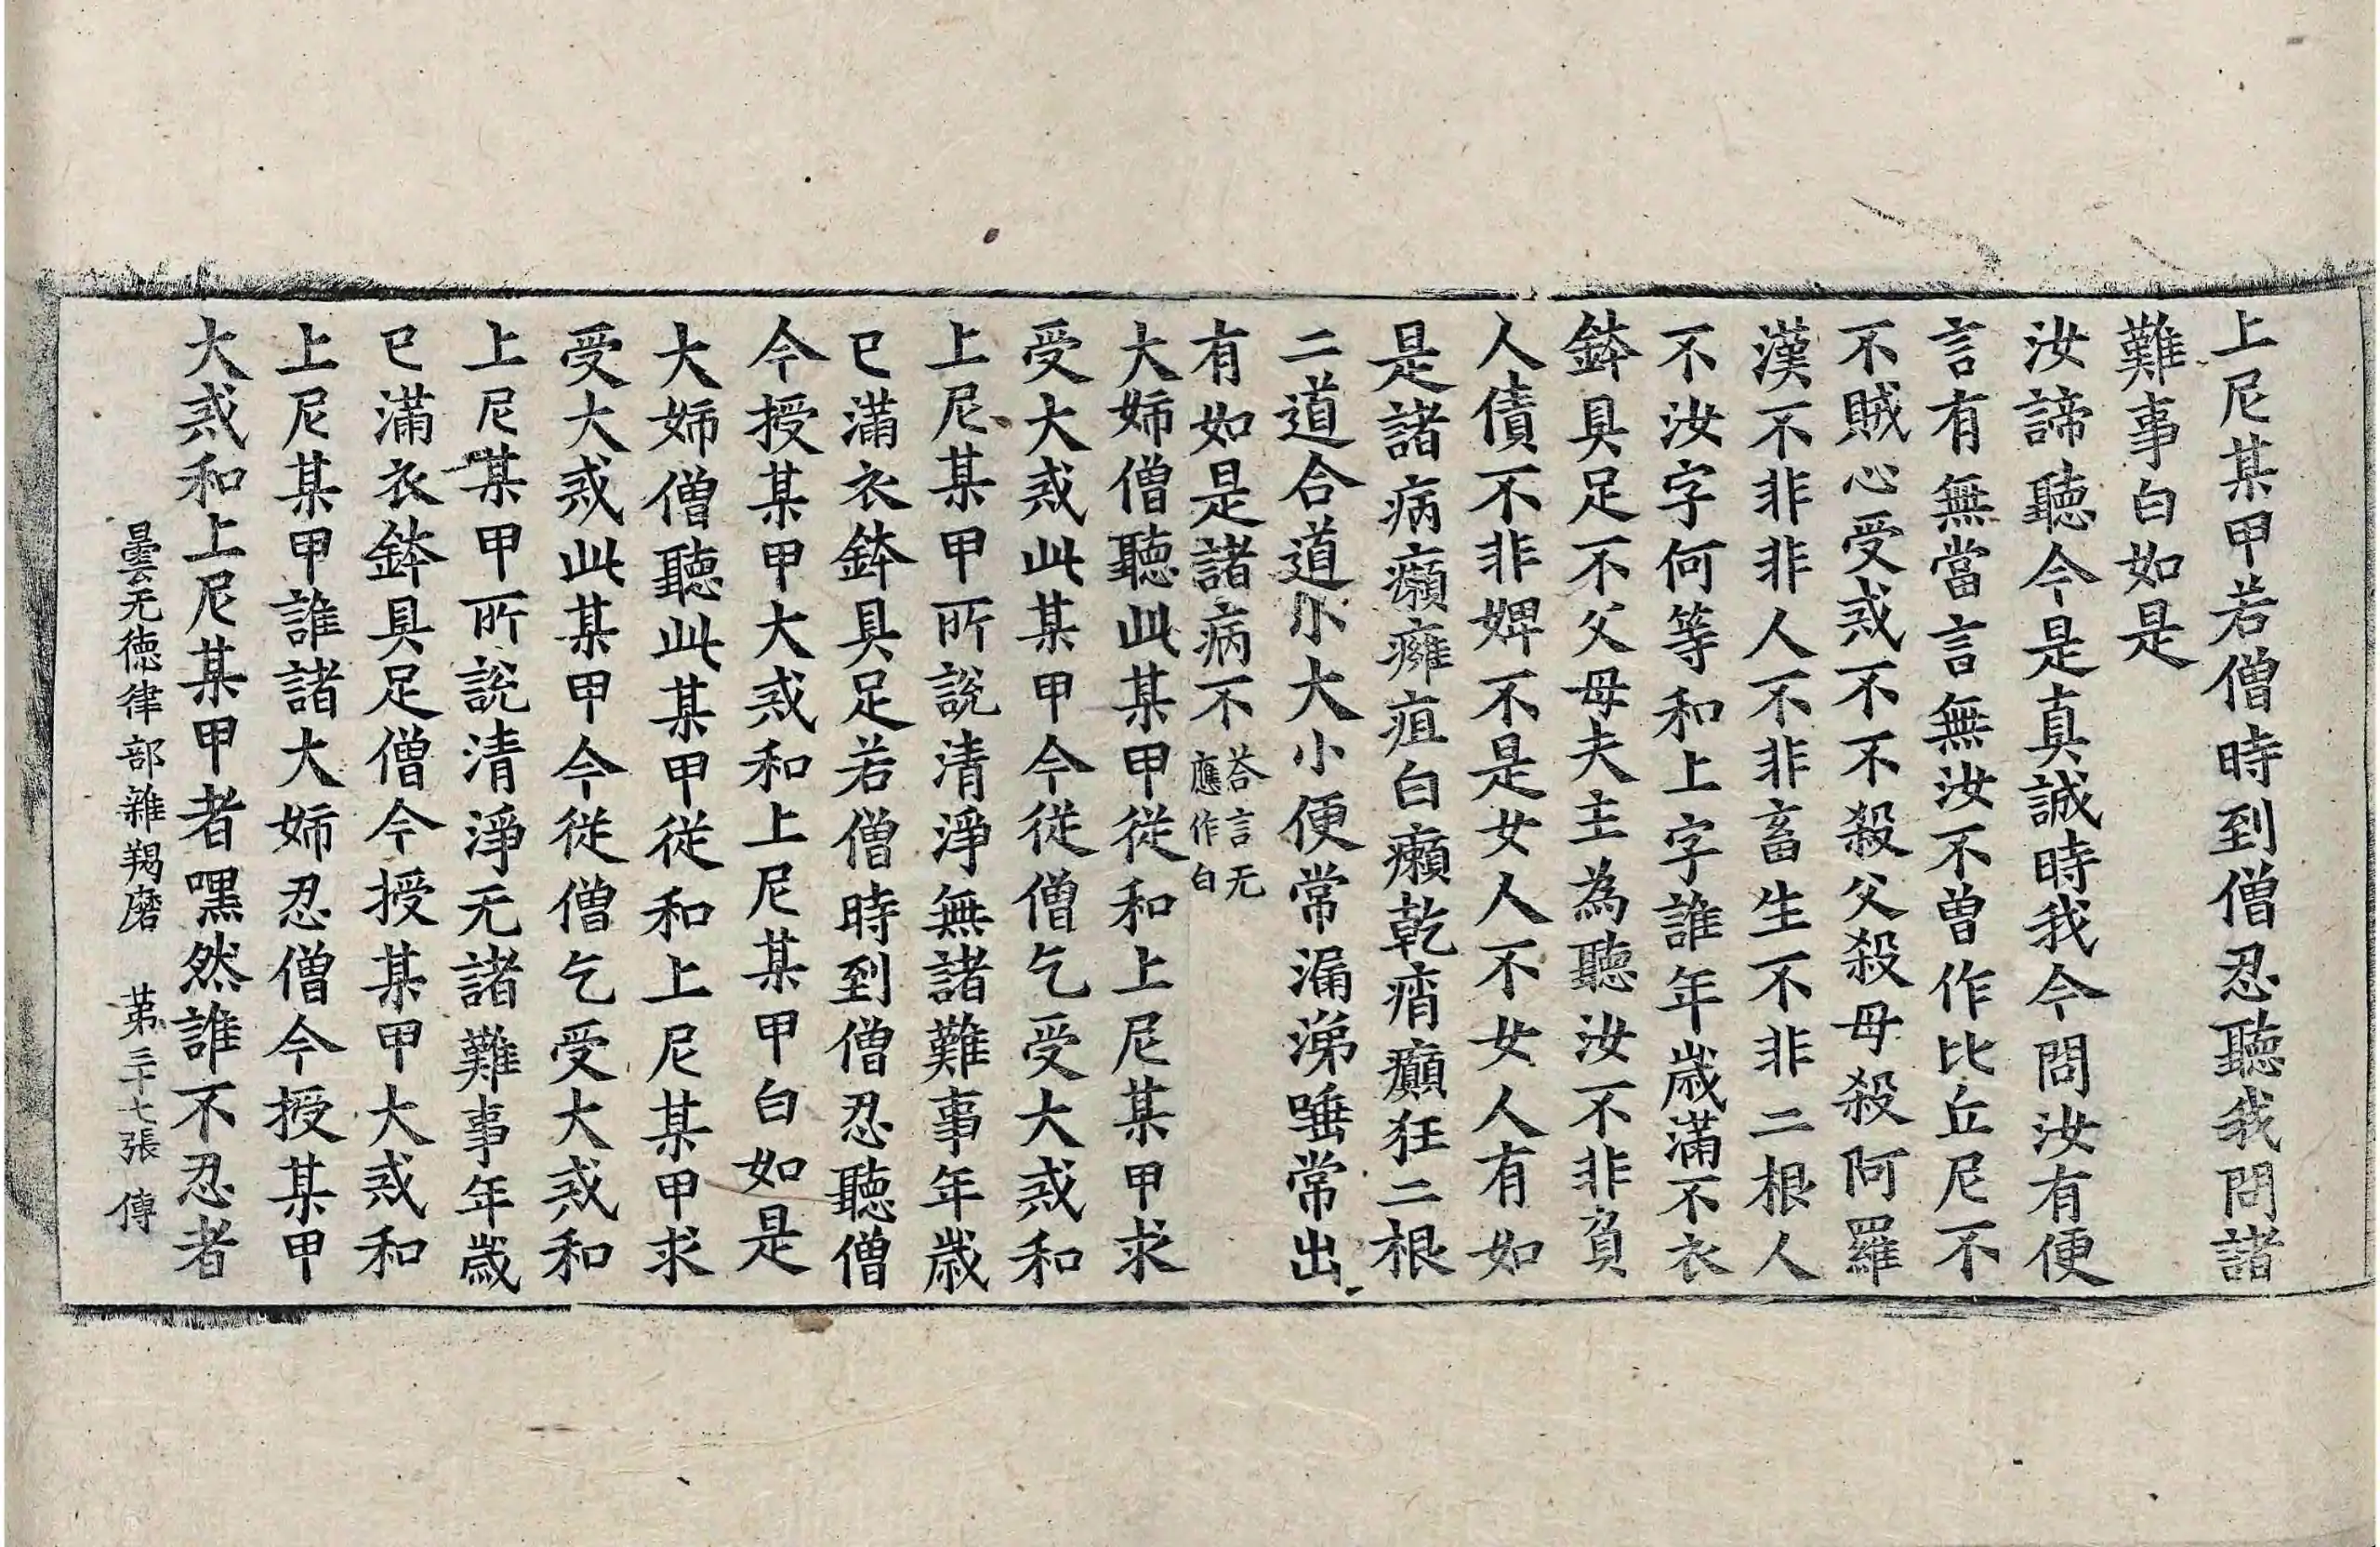 上尼某甲若僧時到僧忍聽我問諸
難事白如是
汝諦聽今是真誠時我今問汝有便
言有無當言無汝不曽作比丘尼不
不賊心受戒不不殺父殺母殺阿羅
漢不非非人不非畜生不非二根人
不汝字何等和上字誰年歳滿不衣
鉢具足不父母夫主為聽汝不非負
人債不非婢不是女人不女人有如
是諸病癩癰疽白癩乾痟癲狂二根
二道合道小大小便常漏涕唾常出
有如是諸病不荅言无應作白
大姉僧聽此某甲從和上尼某甲求
受大戒此某甲今從僧乞受大戒和
上尼某甲所說清淨無諸難事年歳
已滿衣鉢具足若僧時到僧忍聽僧
今授某甲大戒和上尼某甲白如是
大姉僧聽此某甲從和上尼某甲求
受大戒此某甲今從僧乞受大戒和
上尼某甲所說清淨无諸難事年歳
已滿衣鉢具足僧今授某甲大戒和
上尼某甲誰諸大姉忍僧今授某甲
大戒和上尼某甲者嘿然誰不忍者
曇无徳律部雜羯磨 苐三十七張 傳